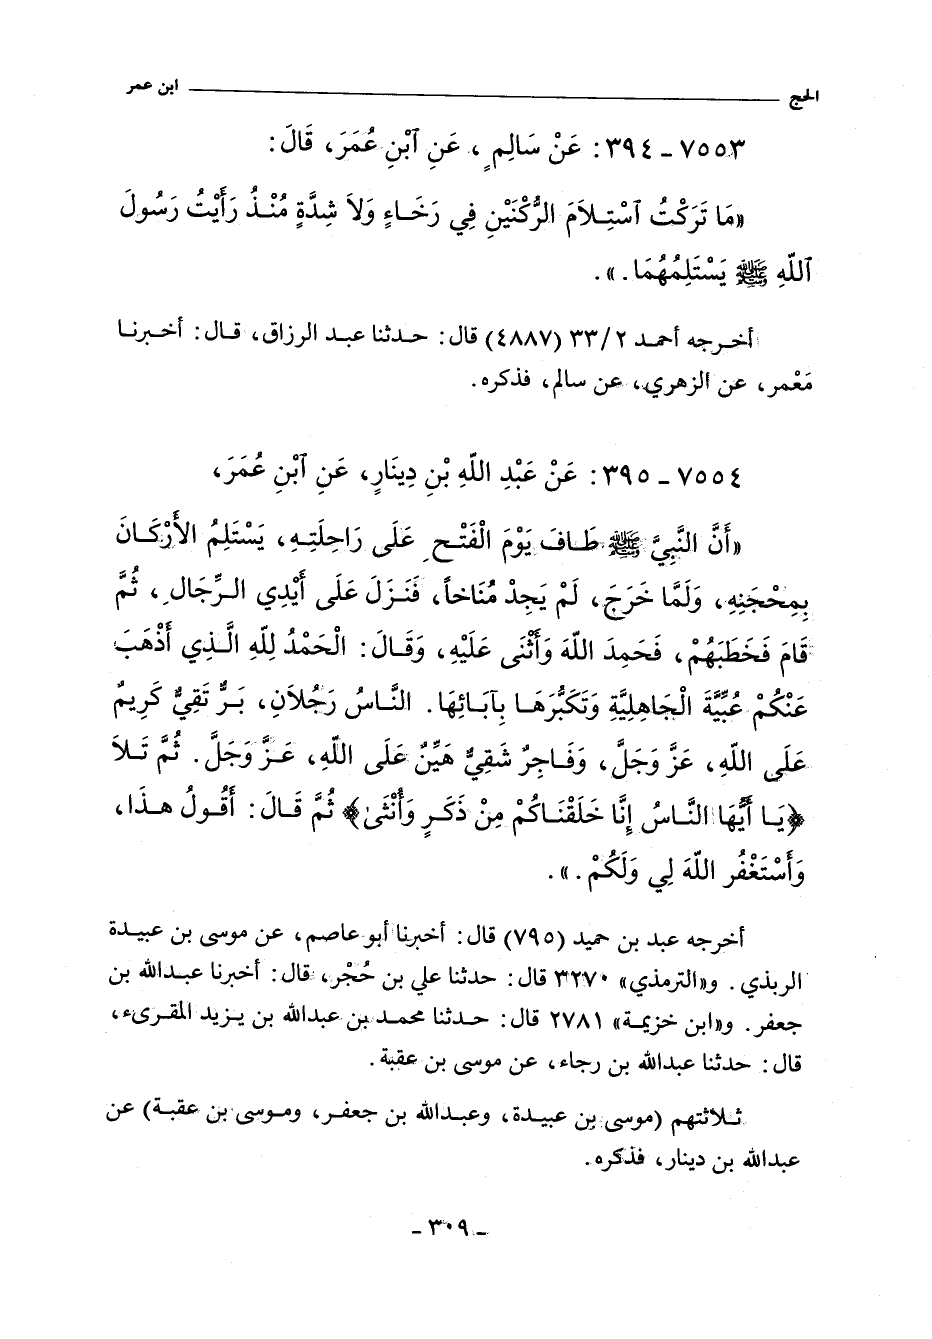 الحج ــــــــــــــــــــــــــــــ ابن عمر
٧٥٥٣ ـ ٣٩٤: عَنْ سَالِمٍ، عَنِ ٱبْنِ عُمَرَ، قَالَ:
«مَا تَرَكْتُ ٱسْتِلاَمَ الرُّكْنَيْنِ فِي رَخَاءٍ وَلاَ شِدَّةٍ مُنْذُ رَأَيْتُ رَسُولَ
ٱللّهِ ﷺ يَسْتَلِمُهُمَا.».
أخرجه أحمد ٢/٣٣ (٤٨٨٧) قال: حدثنا عبد الرزاق، قال: أخبرنا
مَعْمر، عن الزهري، عن سالم، فذكره.
٧٥٥٤ ـ ٣٩٥: عَنْ عَبْدِ اللّهِ بْنِ دِينَارٍ، عَنِ ٱبْنِ عُمَرَ،
«أَنَّ النَّبِيَّ ﷺ طَافَ يَوْمَ الْفَتْحِ عَلَى رَاحِلَتِهِ، يَسْتَلِمُ الأَرْكَانَ
بِمِحْجَنِهِ، وَلَمَّا خَرَجَ، لَمْ يَجِدْ مُنَاخاً، فَنَزَلَ عَلَى أَيْدِي الرِّجَالِ، ثُمَّ
قَامَ فَخَطَبَهُمْ، فَحَمِدَ اللّهَ وَأَثْنَى عَلَيْهِ، وَقَالَ: الْحَمْدُ لِلّهِ الَّذِي أَذْهَبَ
عَنْكُمْ عُبِّيَّةَ الْجَاهِلِيَّةِ وَتَكَبُّرَهَا بِآبَائِهَا. النَّاسُ رَجُلاَنِ، بَرٌّ تَقِيٌّ كَرِيمٌ
عَلَى اللّهِ، عَزَّ وَجَلَّ، وَفَاجِرٌ شَقِيٌّ هَيِّنٌ عَلَى اللّهِ، عَزَّ وَجَلَّ. ثُمَّ تَلاَ
﴿يَا أَيُّهَا النَّاسُ إِنَّا خَلَقْنَاكُمْ مِنْ ذَكَرٍ وَأُنْثَىٰ﴾ ثُمَّ قَالَ: أَقُولُ هذَا،
وَأَسْتَغْفُر اللّهَ لِي وَلَكُمْ.».
أخرجه عبد بن حميد (٧٩٥) قال: أخبرنا أبو عاصم، عن موسى بن عبيدة
الربذي. و«الترمذي» ٣٢٧٠ قال: حدثنا علي بن حُجْر، قال: أخبرنا عبدالله بن
جعفر. و«ابن خزيمة» ٢٧٨١ قال: حدثنا محمد بن عبدالله بن يزيد المقرىء،
قال: حدثنا عبدالله بن رجاء، عن موسى بن عقبة.
ثلاثتهم (موسى بن عبيدة، وعبدالله بن جعفر، وموسى بن عقبة) عن
عبدالله بن دينار، فذكره.
ـ ٣٠٩ ـ